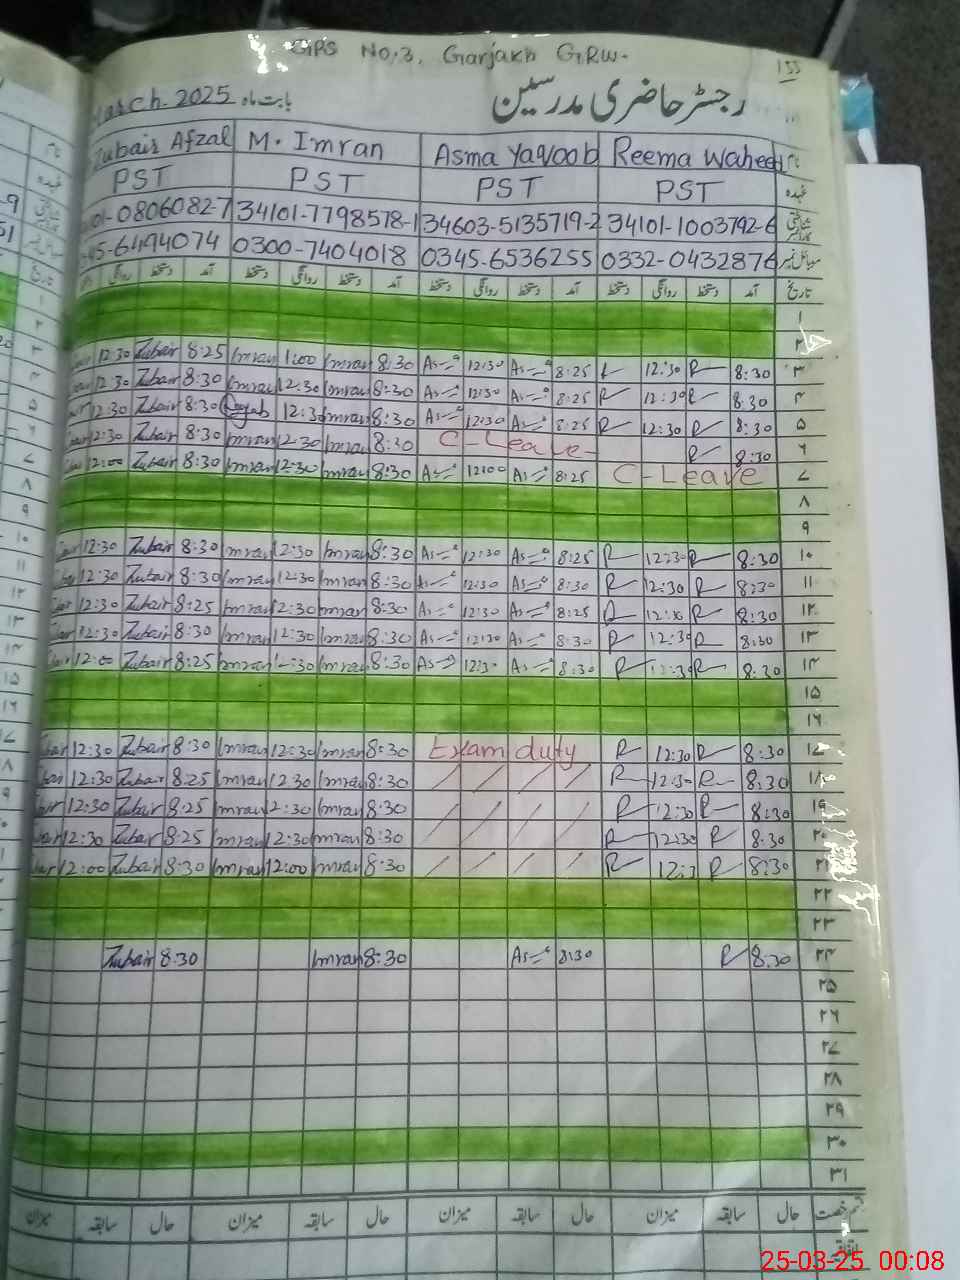 GPS No;3, Garjakh GRW.
155
March-2025 بابت ماہ رجسٹر حاضری مدرسین
Zubair Afzal M. Imran Asma Yaqoob Reema Waheed نام
PST PST PST PST عہدہ
01-0806082-7 34101-7798578-1 34603-5135719-2 34101-1003792-6 شناختی کارڈ نمبر
45-6494074 0300-7404018 0345-6536255 0332-0432876 موبائل نمبر
روانگی دستخط آمد دستخط روانگی دستخط آمد دستخط روانگی دستخط آمد دستخط روانگی دستخط آمد تاریخ
۱
۲
12:30 Zubair 8:25 Imran 1:00 Imran 8:30 As 12:30 As 8:25 R 12:30 R 8:30 ۳
12:30 Zubair 8:30 Imran 12:30 Imran 8:30 As 12:30 As 8:25 R 12:30 R 8:30 ۴
12:30 Zubair 8:30 12:30 Imran 8:30 As 12:30 As 8:25 R 12:30 R 8:30 ۵
12:30 Zubair 8:30 Imran 12:30 Imran 8:30 C-Leave- R 8:30 ۶
12:00 Zubair 8:30 Imran 12:30 Imran 8:30 As 12:00 As 8:25 C-Leave ۷
۸
۹
12:30 Zubair 8:30 Imran 12:30 Imran 8:30 As 12:30 As 8:25 R 12:30 R 8:30 ۱۰
12:30 Zubair 8:30 Imran 12:30 Imran 8:30 As 12:30 As 8:30 R 12:30 R 8:30 ۱۱
12:30 Zubair 8:25 Imran 12:30 Imran 8:30 As 12:30 As 8:25 R R 8:30 ۱۲
12:30 Zubair 8:30 Imran 12:30 Imran 8:30 As 12:30 As 8:30 R 12:30 R 8:30 ۱۳
12:00 Zubair 8:25 Imran Imran 8:30 As As 8:30 R 12:30 R 8:30 ۱۴
۱۵
۱۶
12:30 Zubair 8:30 Imran 12:30 Imran 8:30 Exam duty R 12:30 R 8:30 ۱۷
12:30 Zubair 8:25 Imran 12:30 Imran 8:30 R 12:30 R 8:30 ۱۸
12:30 Zubair 8:25 Imran 12:30 Imran 8:30 R 12:30 R 8:30 ۱۹
12:30 Zubair 8:25 Imran 12:30 Imran 8:30 R 12:30 R 8:30 ۲۰
12:00 Zubair 8:30 Imran 12:00 Imran 8:30 R R 8:30 ۲۱
۲۲
۲۳
Zubair 8:30 Imran 8:30 As 8:30 R 8:30 ۲۴
۲۵
۲۶
۲۷
۲۸
۲۹
۳۰
۳۱
میزان سابقہ حال میزان سابقہ حال میزان سابقہ حال میزان سابقہ حال قسم رخصت
اتفاقیہ
25-03-25 00:08